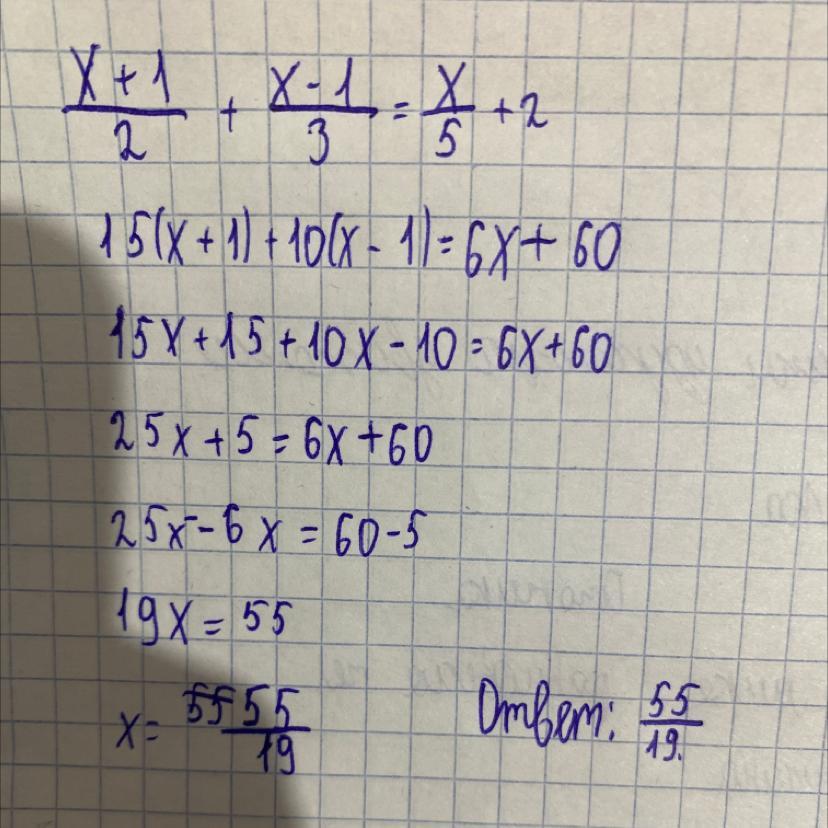 (x+1)/2 + (x-1)/3 = x/5 + 2
15(x+1)+10(x-1)=6x+60
15x+15+10x-10=6x+60
25x+5=6x+60
25x-6x=60-5
19x=55
x= 55 55/19
Ответ: 55/19.